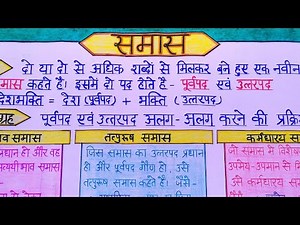 समास
दो या दो से अधिक शब्दों से मिलकर बने हुए एक नवीन
मास कहते हैं। इसमें दो पद होते हैं - पूर्वपद एवं उत्तरपद
देशभक्ति = देश (पूर्वपद) + भक्ति (उत्तरपद)
ग्रह पूर्वपद एवं उत्तरपद अलग-अलग करने की प्रक्रि
व समास
तत्पुरुष समास
कर्मधारय समा
प्रधान हो और वह
जिस समास का उत्तरपद प्रधान
जो समास में विशेष
ययीभाव समास
हो और पूर्वपद गौण हो, उसे
उपमेय-उपमान से मि
तत्पुरुष समास कहते हैं। जैसे-
उसे कर्मधारय सम